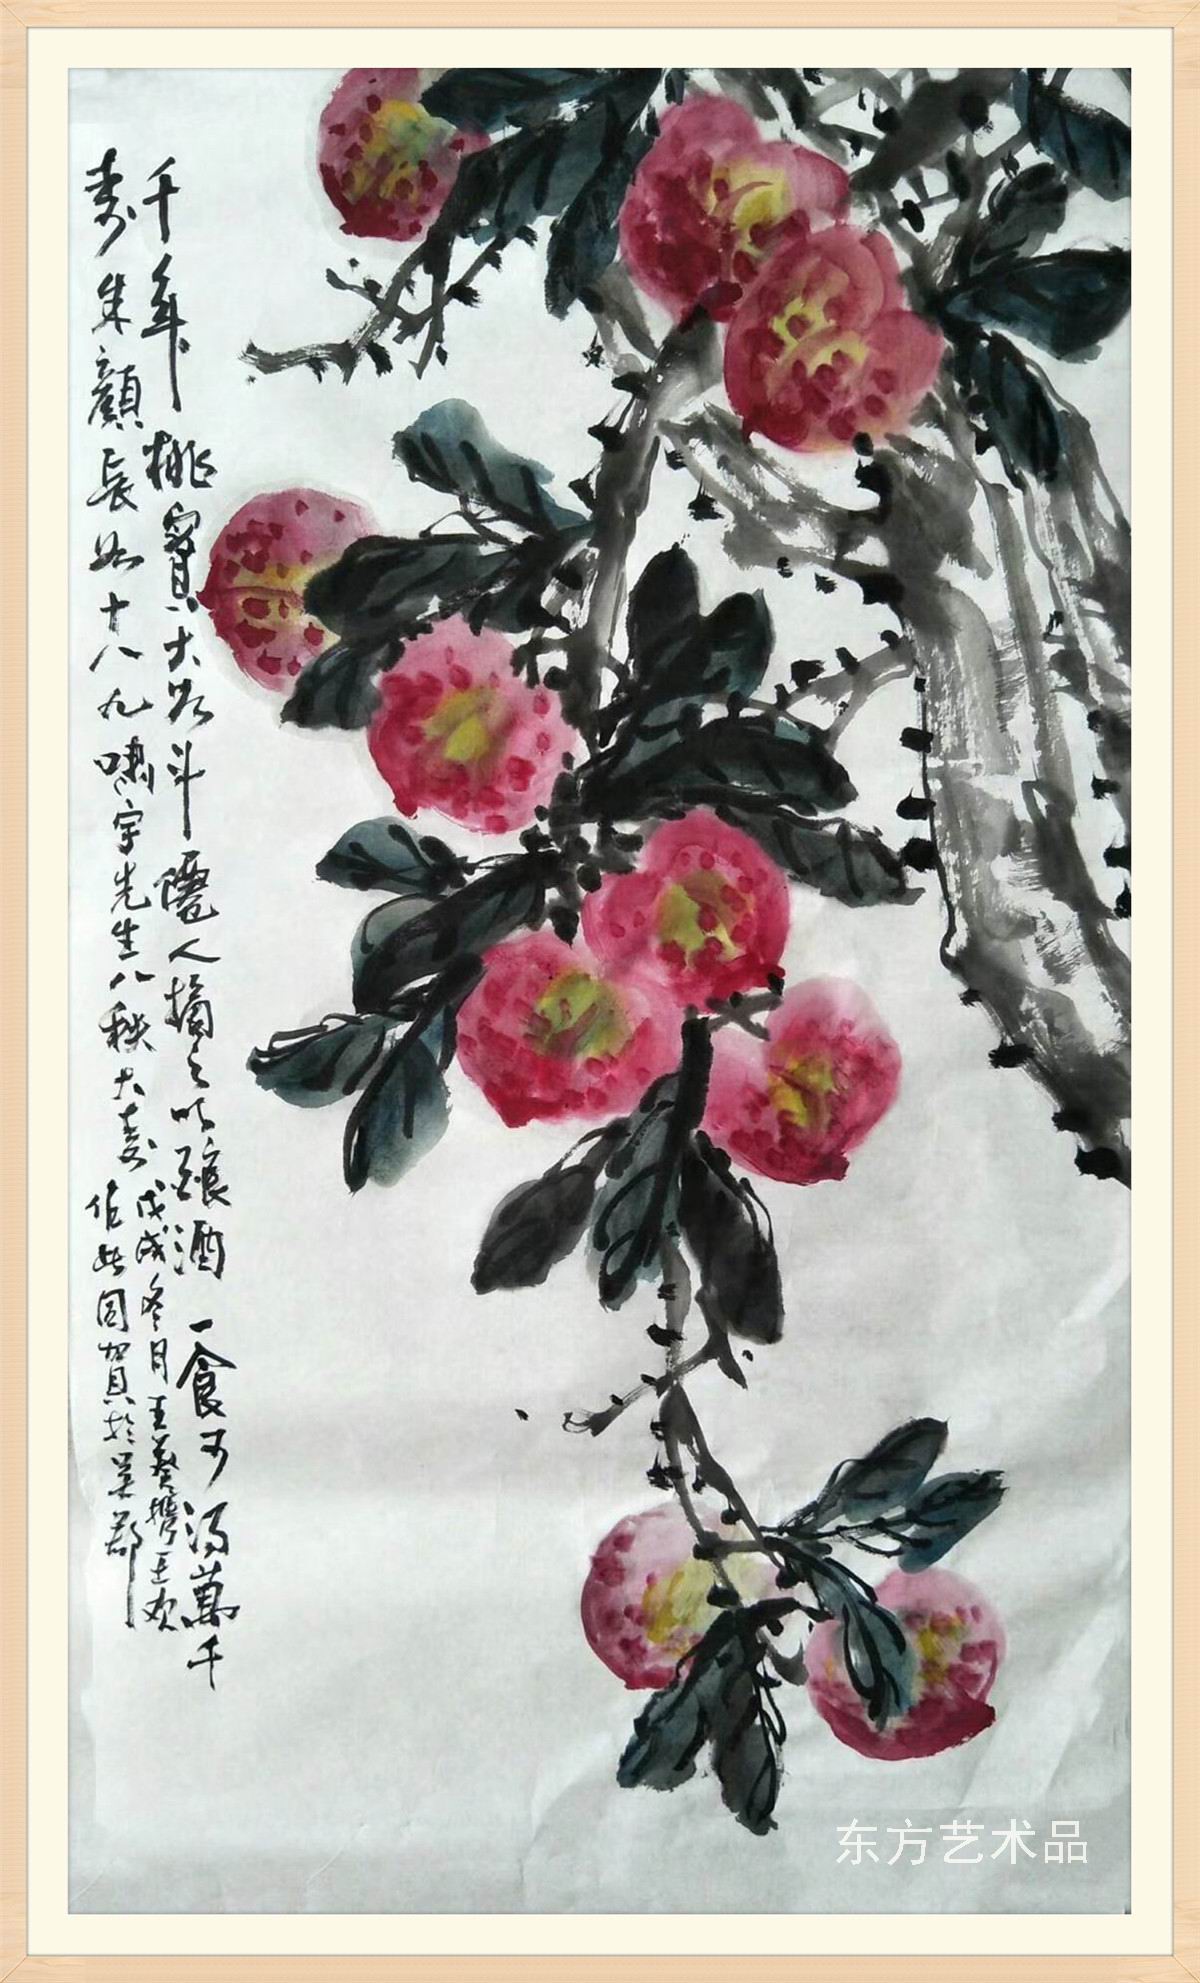 千年桃實大如斗僊人摘之以釀酒一食可得萬千
壽朱顏長如十八九嘯宇先生八秩大壽
戊戌冬月王葵攜王欢
作此圖賀於吴郡
东方艺术品